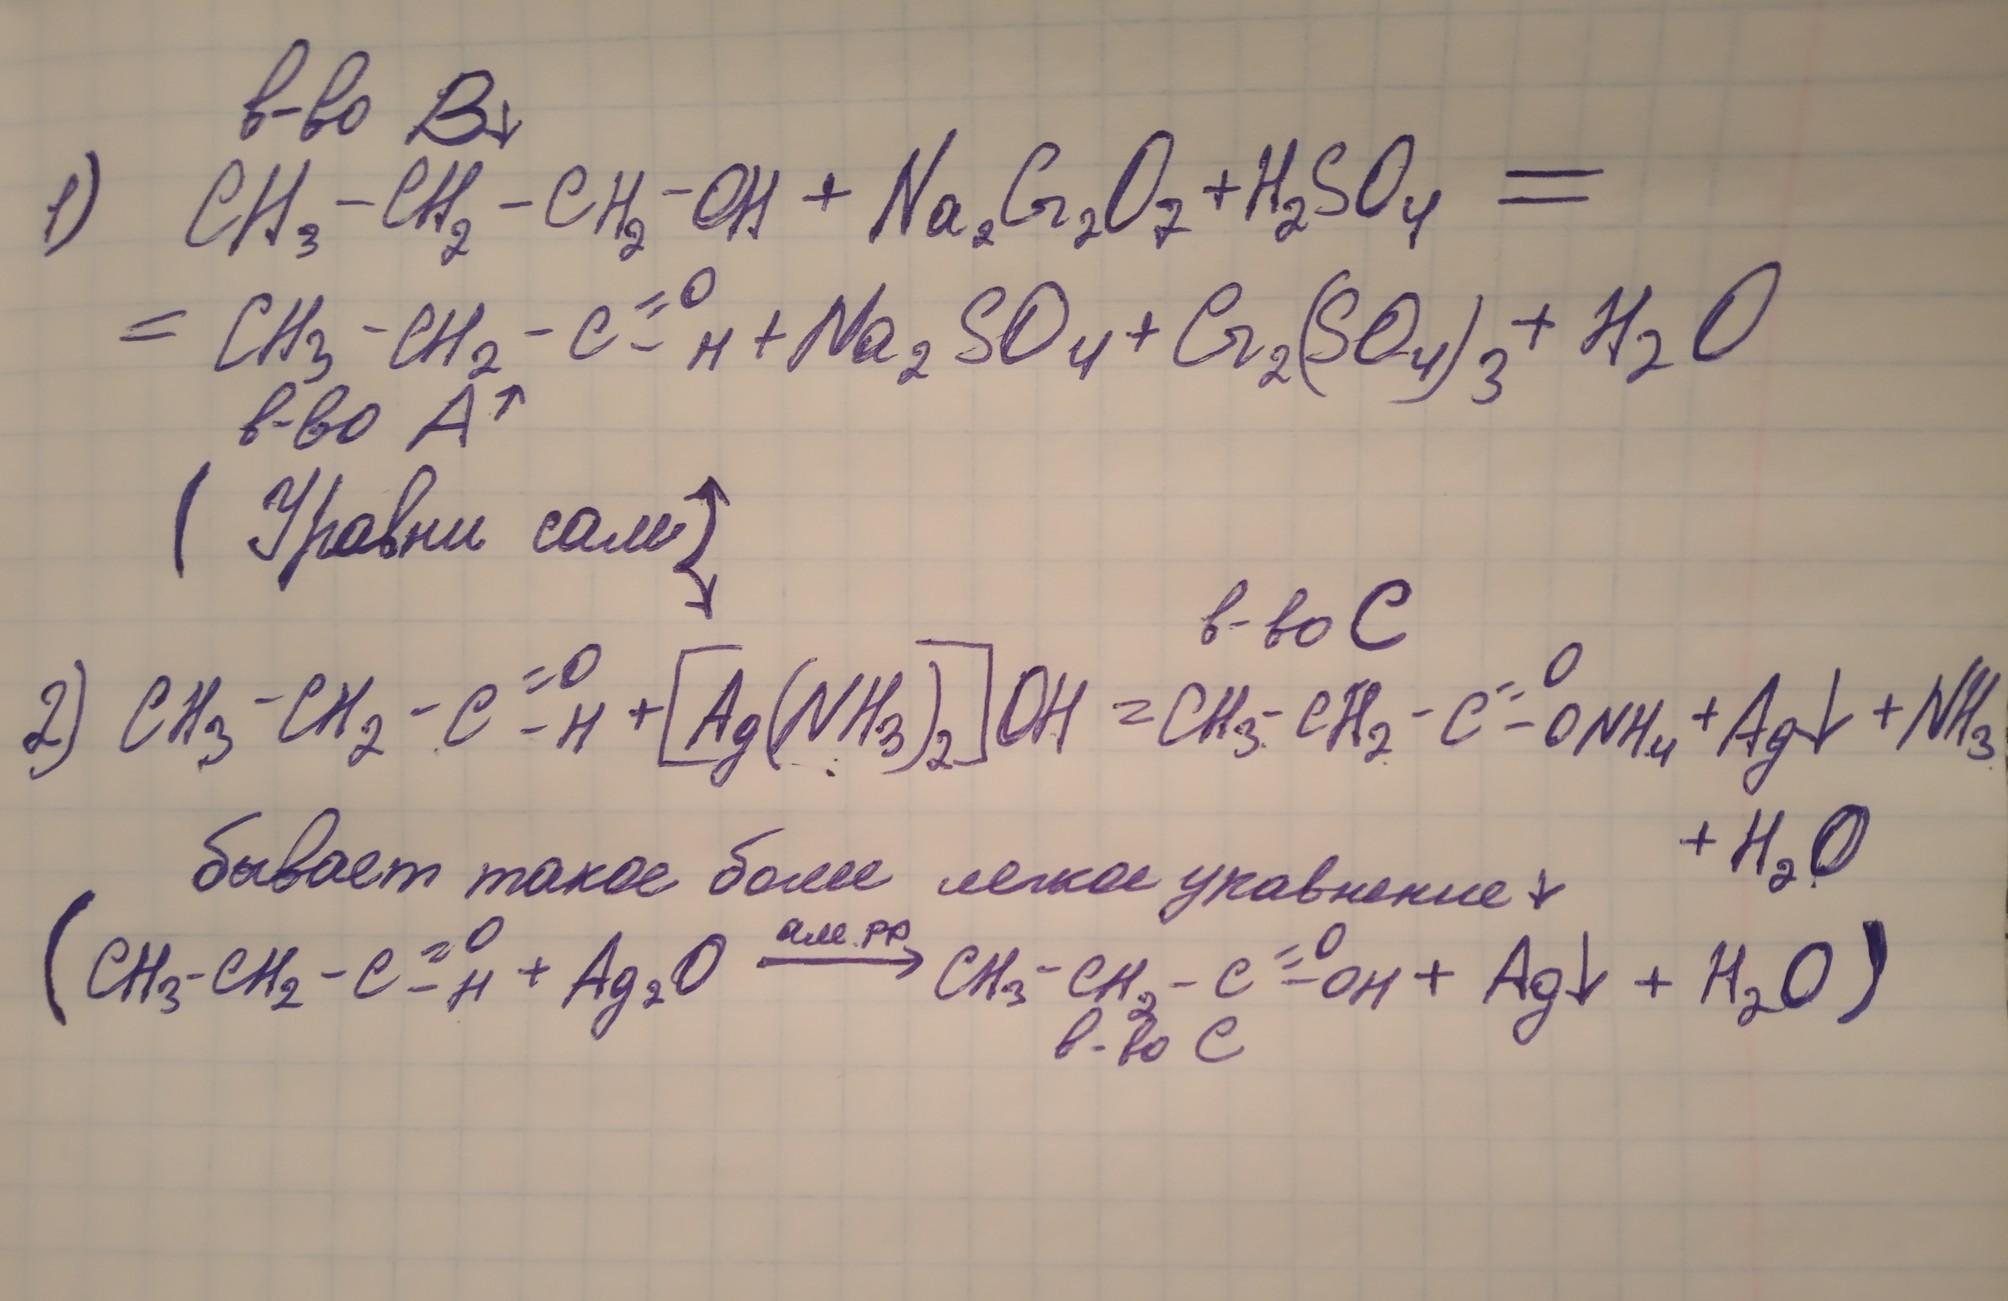 в-во B↓
1) CH₃-CH₂-CH₂-OH + Na₂Cr₂O₇+H₂SO₄ =
= CH₃-CH₂-C=O-H+Na₂SO₄+Cr₂(SO₄)₃+H₂O
в-во A↑
(Уравни сам)
в-во C
2) CH₃-CH₂-C=O-H+[Ag(NH₃)₂]OH=CH₃-CH₂-C=O-ONH₄+Ag↓+NH₃
+H₂O
бывает такое более легкое уравнение↓
(CH₃-CH₂-C=O-H + Ag₂O ам.рр→ CH₃-CH₂-C=O-OH + Ag↓ + H₂O)
в-во C